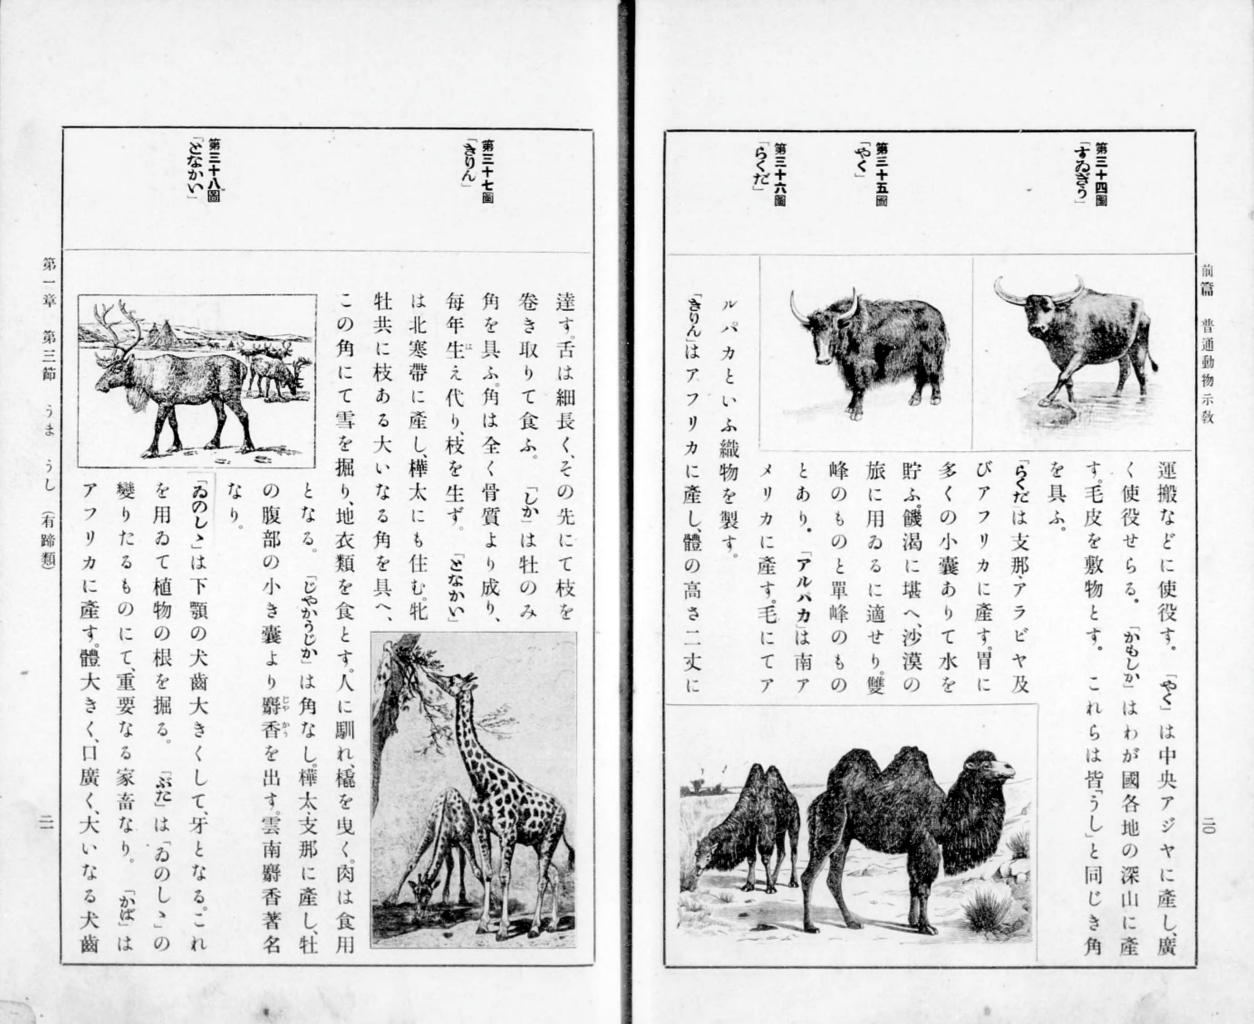 前篇　普通動物示教
二〇
第三十四圖
「すゐぎう」
第三十五圖
「やく」
第三十六圖
「らくだ」
運搬などに使役す。「やく」は中央アジヤに產し、廣
く使役せらる。「かもしか」はわが國各地の深山に產
す。毛皮を敷物とす。これらは皆「うし」と同じき角
を具ふ。
「らくだ」は支那、アラビヤ及
びアフリカに產す。胃に
多くの小囊ありて水を
貯ふ。饑渴に堪へ、沙漠の
旅に用ゐるに適せり。雙
峰のものと單峰のもの
とあり。「アルパカ」は南ア
メリカに產す。毛にてア
ルパカといふ織物を製す。
「きりん」はアフリカに產し、體の高さ二丈に
第三十七圖
「きりん」
第三十八圖
「となかい」
達す。舌は細長く、その先にて枝を
卷き取りて食ふ。「しか」は牡のみ
角を具ふ。角は全く骨質より成り、
每年生え代り、枝を生ず。「となかい」
は
は北寒帶に產し、樺太にも住む。牝
牡共に枝ある大いなる角を具へ、
この角にて雪を掘り、地衣類を食とす。人に馴れ、橇を曳く。肉は食用
となる。「じやかうじか」は角なし。樺太、支那に產し、牡
の腹部の小き囊より麝香を出す。雲南麝香著名
じやかう
なり。
「ゐのしゝ」は下顎の犬齒大きくして、牙となる。これ
を用ゐて植物の根を掘る。「ぶた」は「ゐのしゝ」の
變りたるものにて、重要なる家畜なり。「かば」は
アフリカに產す。體大きく、口廣く、大いなる犬齒
第一章　第三節　うま　うし（有蹄類）
二一